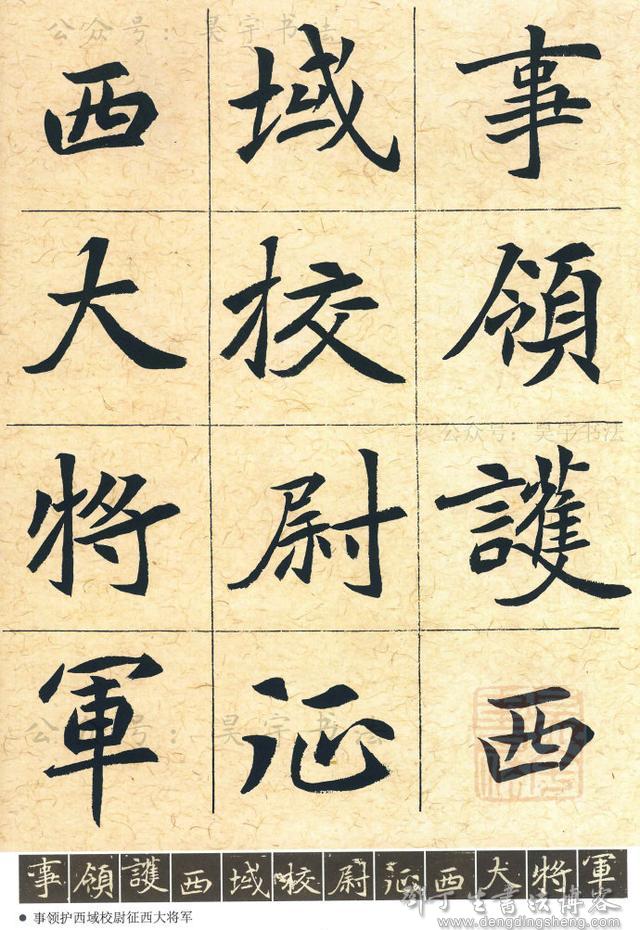 公众号：昊宇书法
事領護西
域校尉征西
大将軍
公众号：昊宇书法
公众号：昊宇书法
事領護西域校尉征西大将軍
● 事领护西域校尉征西大将军
邓丁生書法博客
www.dengdingsheng.com